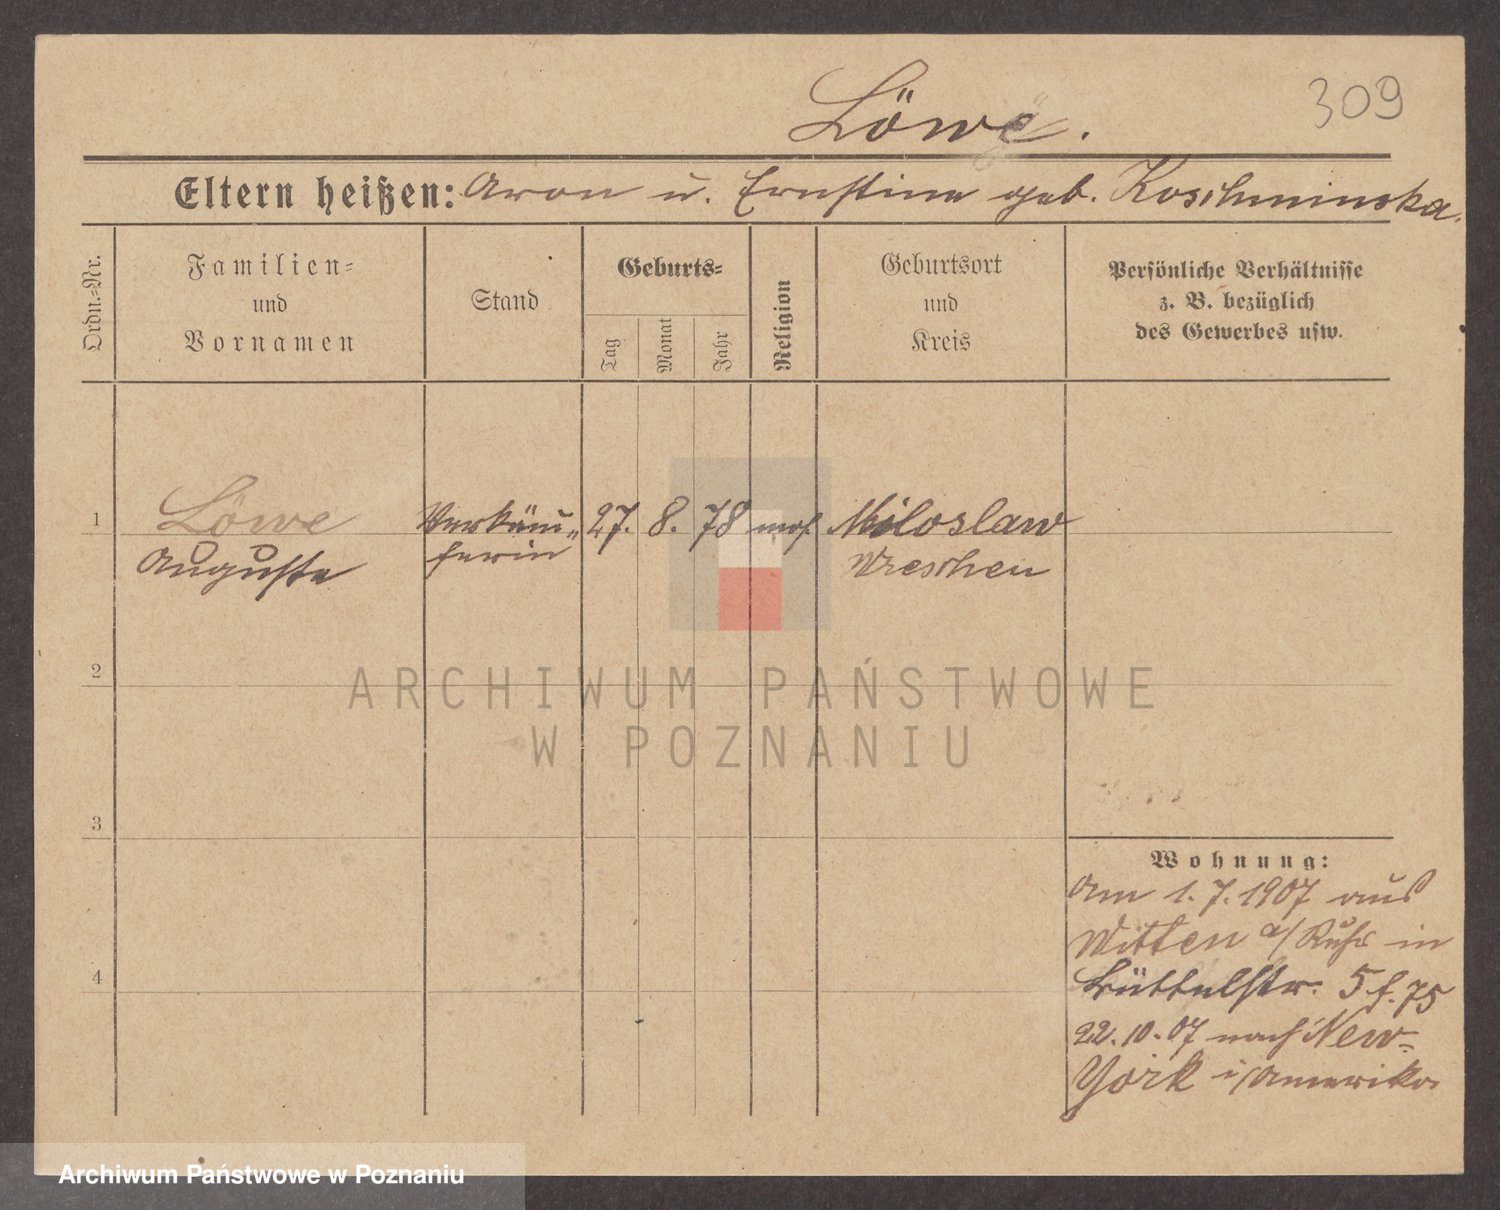 309
Löwe.
Eltern heißen: Aron u. Ernstine geb. Koschminska.
Ordn.-Nr.
Familien-
und
Vornamen
Stand
Geburts-
Tag
Monat
Jahr
Religion
Geburtsort
und
Kreis
Persönliche Verhältnisse
z. B. bezüglich
des Gewerbes usw.
1 Löwe Verkäu- 27. 8. 78 mos. Miloslaw
Auguste ferin Wreschen
2
3
4
ARCHIWUM PAŃSTWOWE
W POZNANIU
Wohnung:
Am 1.7.1907 aus
Witten a/Ruhr in
Büttelstr. 5 f. 75
22.10.07 nach New-
York i/Amerika
Archiwum Państwowe w Poznaniu